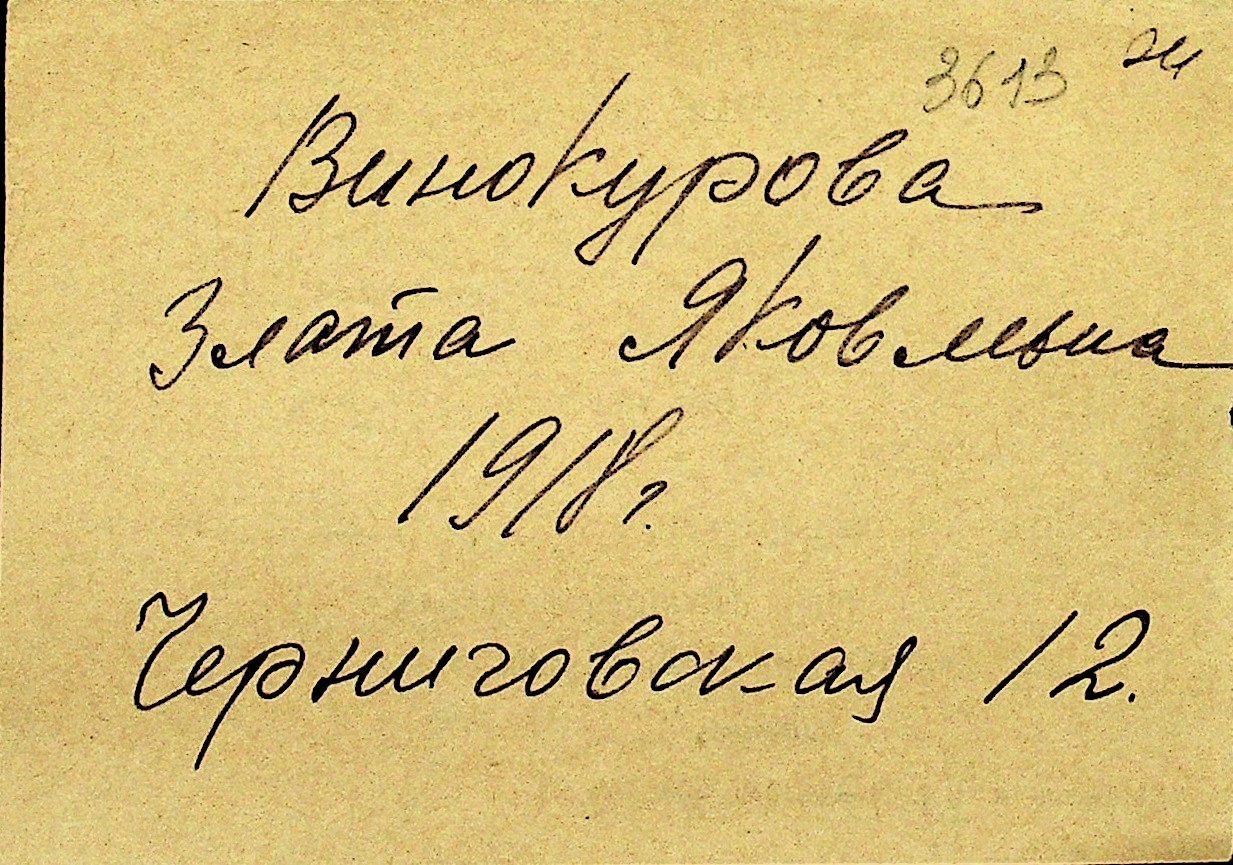 3613
Винокурова
Злата Яковлевна
1918г.
Черниговская 12.